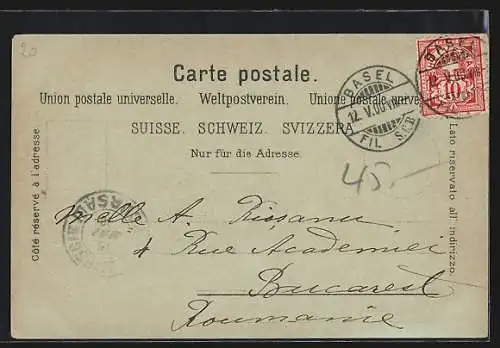 20
Carte postale.
Union postale universelle. Weltpostverein. Unione postale
SUISSE. SCHWEIZ. SVIZZERA
Nur für die Adresse.
Côté réservé à l'adresse
Lato riservato all' indirizzo.
BASEL
12. V. 00
FIL. S.C.B
BASEL
10
45.-
Melle A. Rissanu
4 Rue Academiei
Bucarest
Roumanie